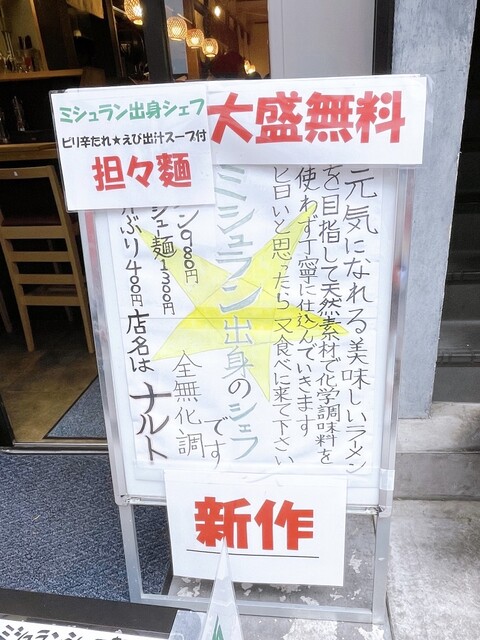 ミシュラン出身シェフ
ピリ辛たれ★えび出汁スープ付
担々麺
大盛無料
元気になれる美味しいラーメン
を目指して天然素材で化学調味料を
使わず丁寧に仕込んでいきます
ヒ日いと思ったら又食べに来て下さい
ミシュラン出身のシェフ
です
全無化調
麺1300円
ぶり400円
店名は
ナルト
新作
ミシュランシェフ